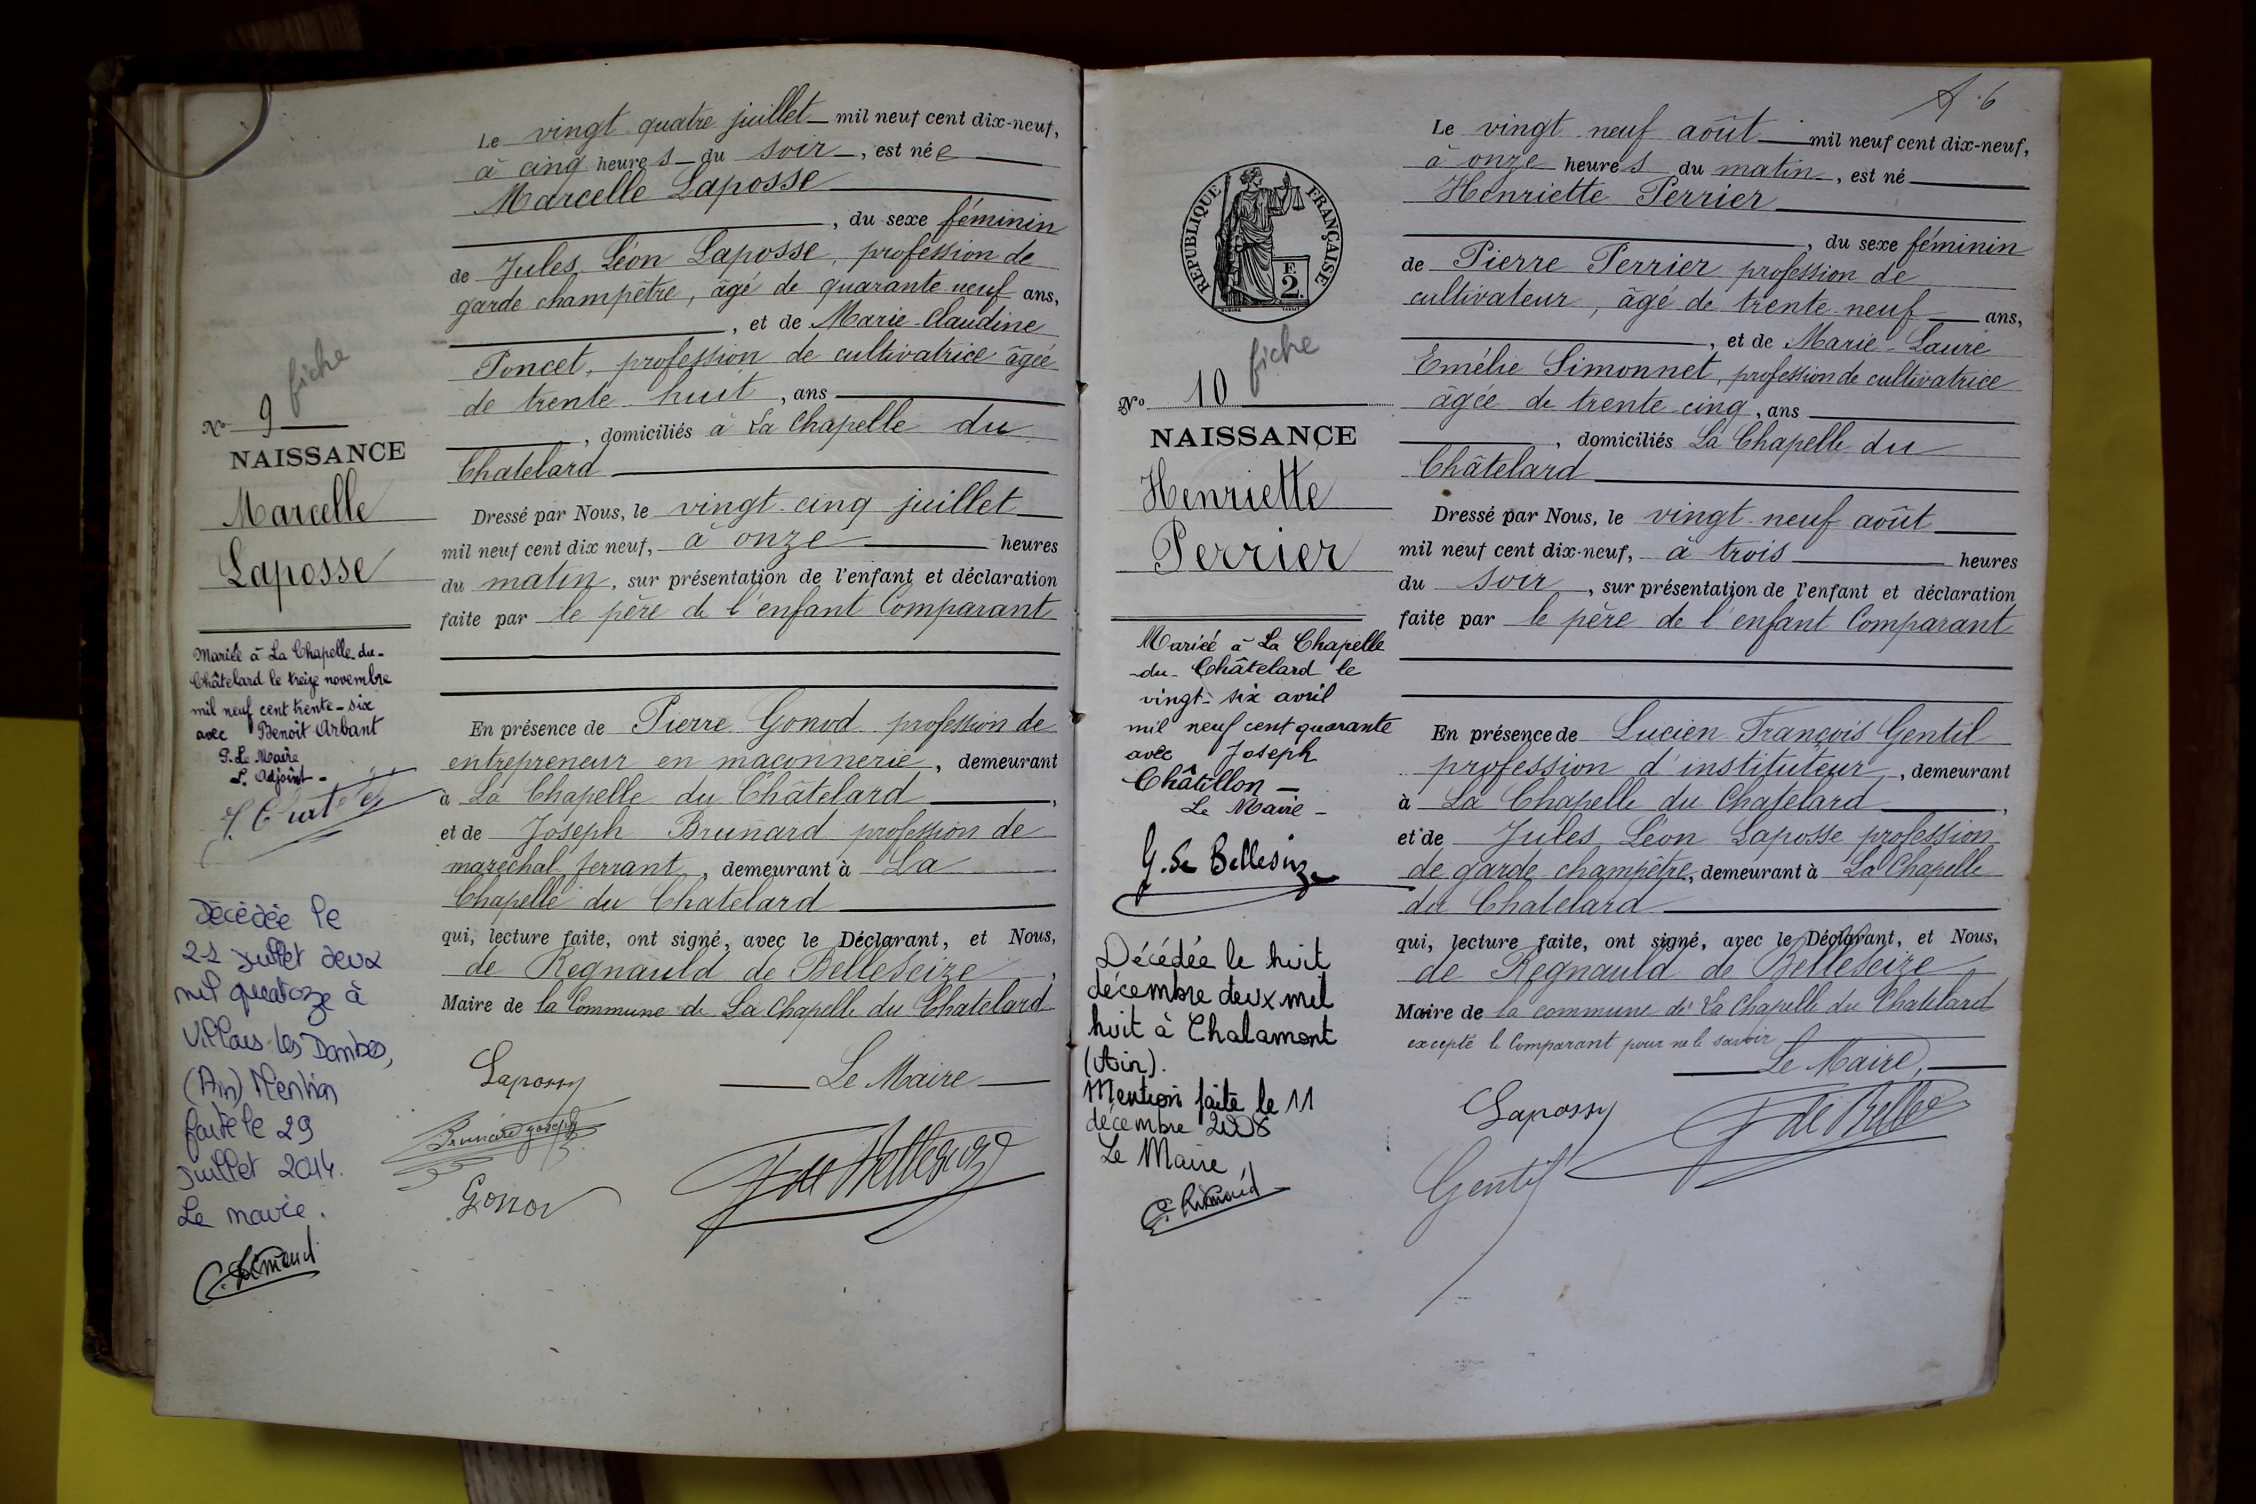 fiche
No 9
NAISSANCE
Marcelle
Laposse
Mariée à La Chapelle-du-
Châtelard le treize novembre
mil neuf cent trente-six
avec Benoit Arbant
P. Le Maire
L'Adjoint -
Décédée le
21 juillet deux
mil quatorze à
Villars-les-Dombes,
(Ain) Mention
faite le 29
juillet 2014.
Le maire.
Le vingt quatre juillet mil neuf cent dix-neuf,
à cinq heures du soir, est née
Marcelle Laposse
, du sexe féminin
de Jules Léon Laposse, profession de
garde champêtre, âgé de quarante neuf ans,
, et de Marie Claudine
Poncet, profession de cultivatrice âgée
de trente huit, ans
, domiciliés à La Chapelle du
Chatelard
Dressé par Nous, le vingt cinq juillet
mil neuf cent dix neuf, à onze heures
du matin, sur présentation de l'enfant et déclaration
faite par le père de l'enfant Comparant
En présence de Pierre Gonod profession de
entrepreneur en maçonnerie, demeurant
à La Chapelle du Châtelard,
et de Joseph Brunard profession de
maréchal ferrant, demeurant à La
Chapelle du Chatelard
qui, lecture faite, ont signé, avec le Déclarant, et Nous,
de Regnauld de Belleseize,
Maire de la Commune de La Chapelle du Chatelard
Laposse
Le Maire
Brunard Joseph
Gonod
6
REPUBLIQUE FRANÇAISE
F.
2.
fiche
No 10
NAISSANCE
Henriette
Perrier
Mariée à La Chapelle
-du-Châtelard le
vingt-six avril
mil neuf cent quarante
avec Joseph
Châtillon -
Le Maire -
G. de Belleseize
Décédée le huit
décembre deux mil
huit à Chalamont
(Ain).
Mention faite le 11
décembre 2008
Le Maire,
Le vingt neuf août mil neuf cent dix-neuf,
à onze heures du matin, est né
Henriette Perrier
, du sexe féminin
de Pierre Perrier profession de
cultivateur, âgé de trente neuf ans,
, et de Marie-Laure
Emélie Simonnet, profession de cultivatrice
âgée de trente cinq, ans
, domiciliés La Chapelle du
Châtelard
Dressé par Nous, le vingt neuf août
mil neuf cent dix-neuf, à trois heures
du soir, sur présentation de l'enfant et déclaration
faite par le père de l'enfant Comparant
En présence de Lucien François Gentil
profession d'instituteur, demeurant
à La Chapelle du Chatelard,
et de Jules Léon Laposse profession
de garde champêtre, demeurant à La Chapelle
du Chatelard
qui, lecture faite, ont signé, avec le Déclarant, et Nous,
de Regnauld de Belleseize
Maire de la commune de La Chapelle du Chatelard
excepté le Comparant pour ne le savoir
Le Maire,
Laposse
Gentil